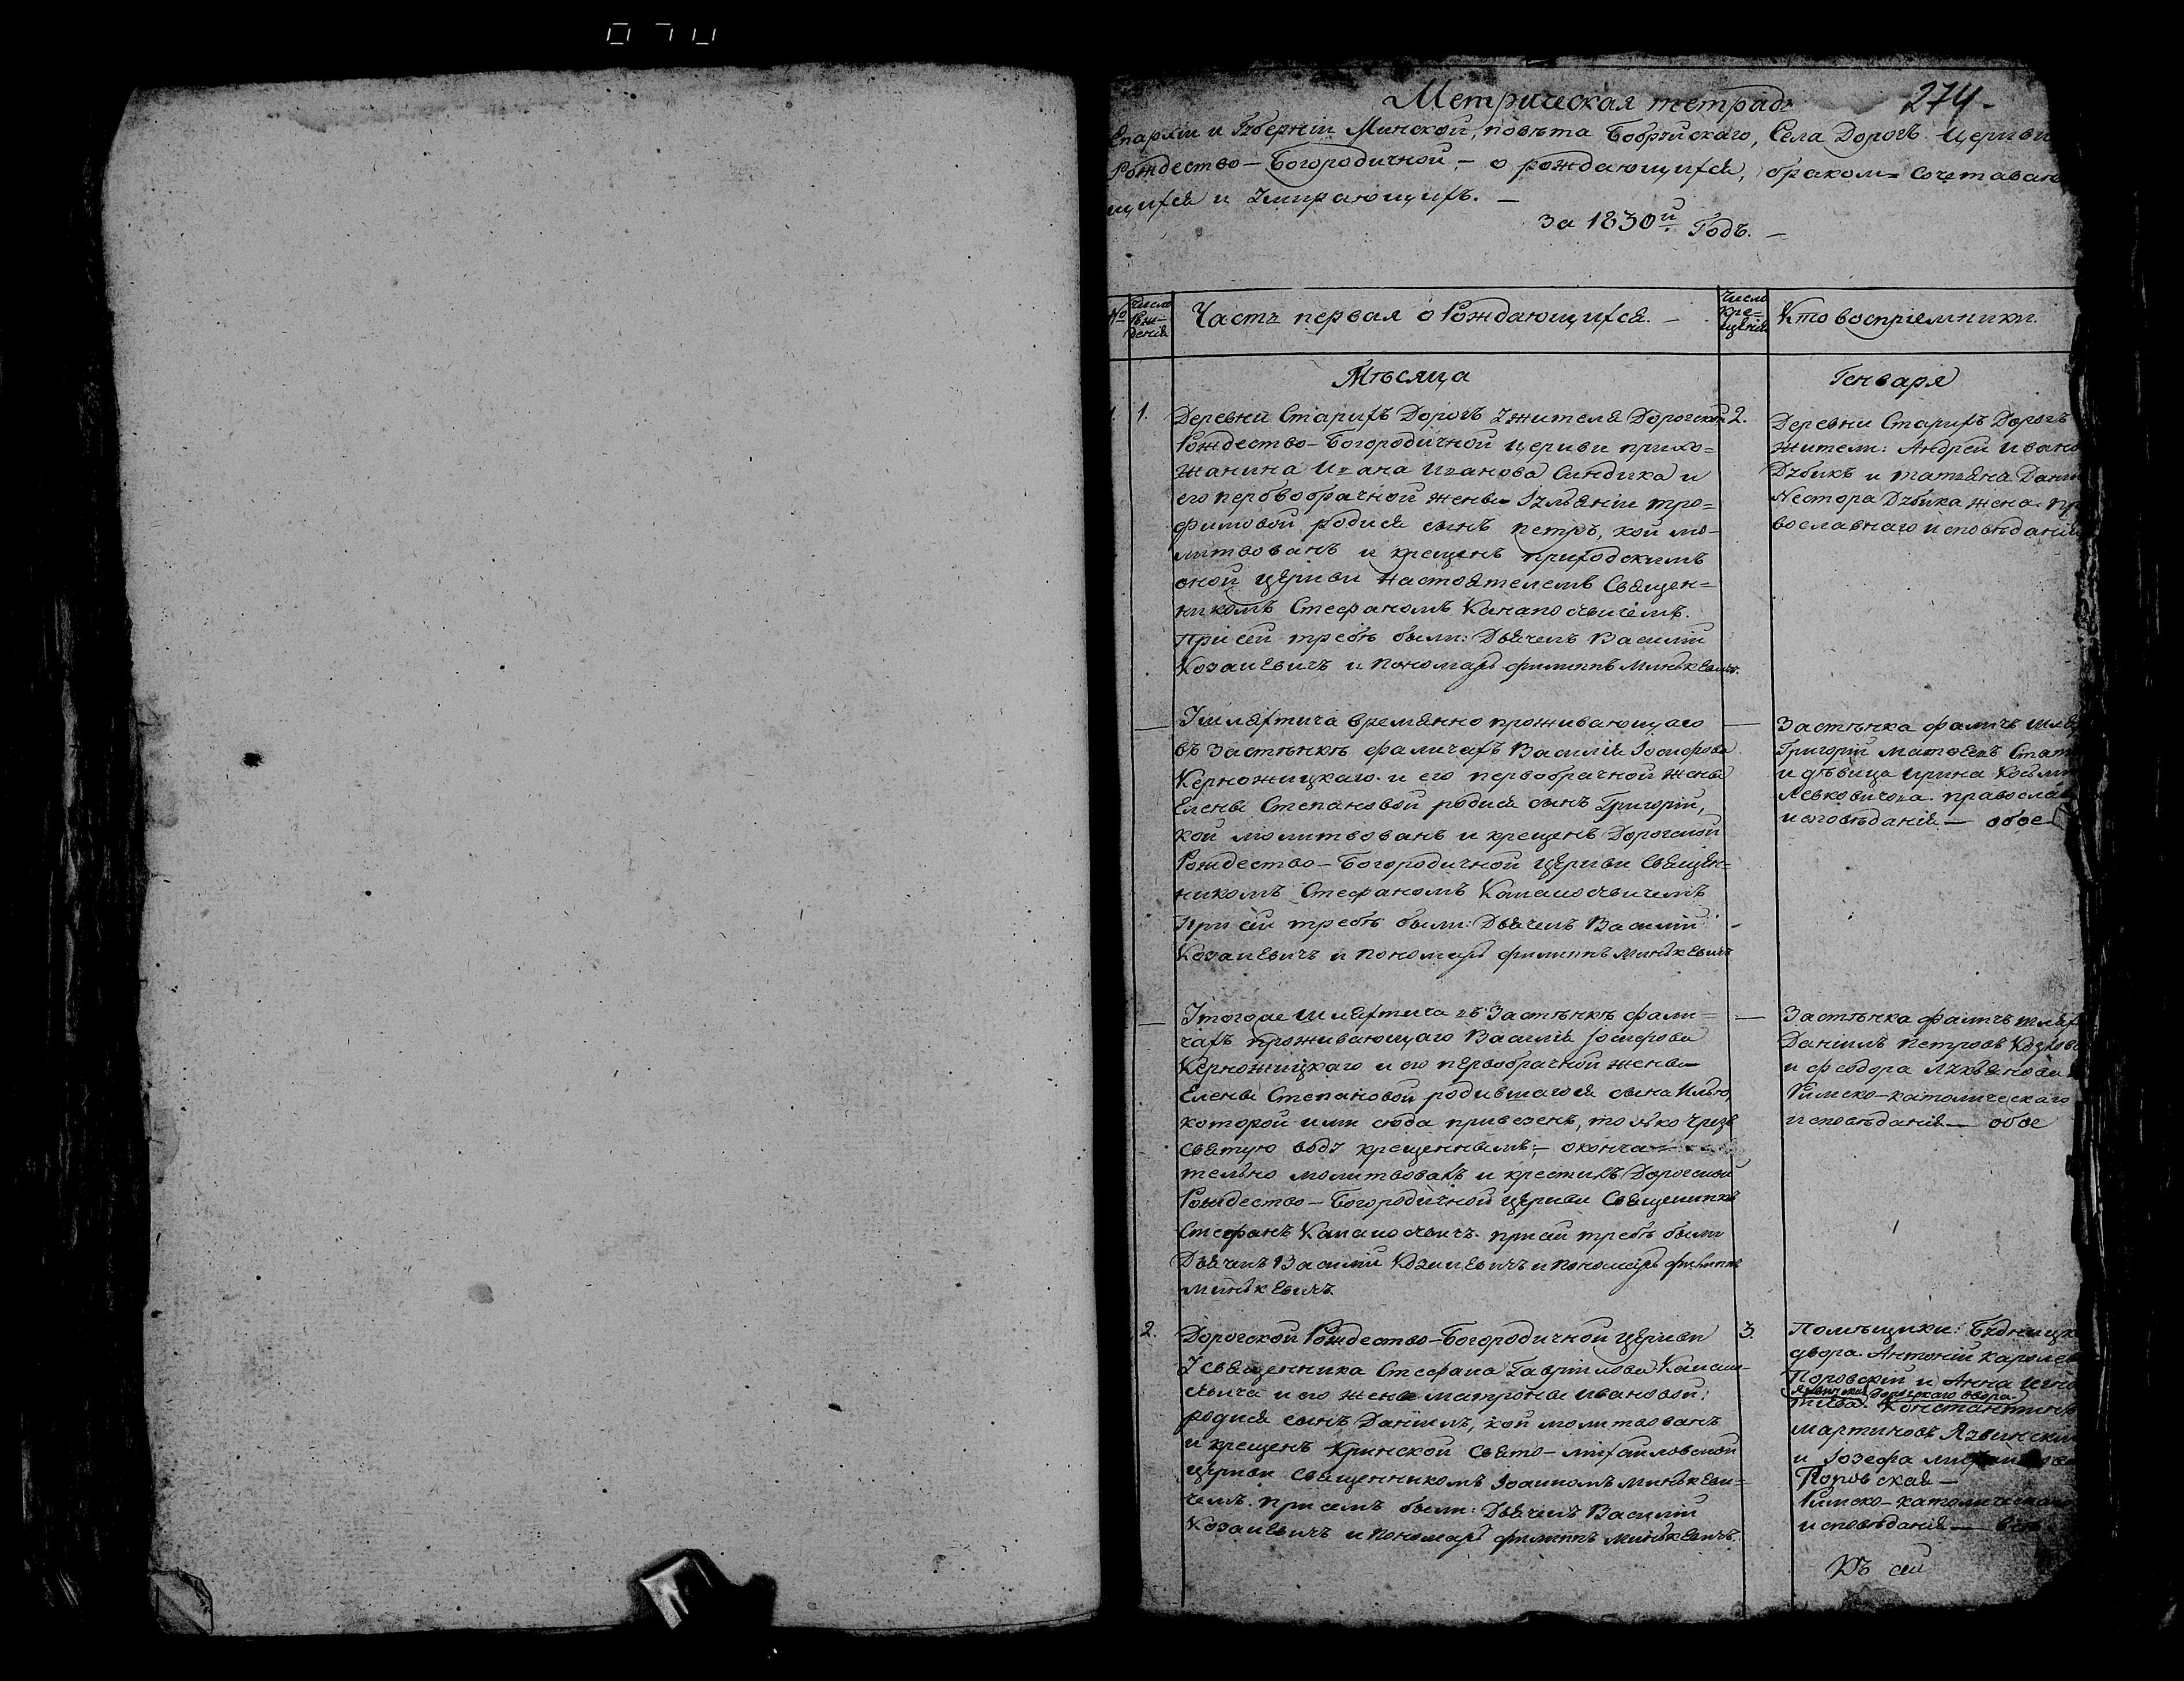 070
Метрическая тетрадь
274.
Епархіи и Губерніи Минской, повѣта Бобруйскаго, Села Дорогъ церкви
Рождество-Богородичной, - о рождающихся, бракомъ сочетаваю
щихся и умирающихъ. -
За 1830й Годъ. -
№
Число рож-
денія
Часть первая о Рождающихся. -
Число
кре=
щенія
Кто воспріемники.
Мѣсяца
Генваря
1. 1.
Деревни Старихъ Дорогъ у жителя Дорогской
Рождество-Богородичной церкви прихо=
жанина Ивана Иванова Синдика и
его первобрачной жены Іуліаніи Тро=
фимовой родися сынъ Петръ, кой мо-
литвованъ и крещенъ приходскимъ
оной церкви настоятелемъ Священ=
никомъ Стефаномъ
При сей требѣ были: Дьячекъ Василій
и Пономарь Филиппъ Минькевичъ.
2.
Деревни Старихъ Дорогъ
жители: Андрей Ивано
Дубикъ и Татьяна Дани
Нестора Дубика жена. пр
вославнаго исповѣданія
—
У шляхтича временно проживающаго
въ Застѣнкѣ Фаличахъ Василія Іосифова
Керножицкаго и его первобрачной жены
Елены Степановой родися сынъ Григорій,
кой молитвованъ и крещенъ Дорогской
Рождество-Богородичной церкви Священ=
никомъ Стефаномъ
При сей требѣ были: Дьячекъ Василій
и Пономарь Филиппъ Минькевичъ
—
Застѣнка Фаличъ шля
Григорій Матвеевъ
и дѣвица Ирина
Левковичова. правосла
исповѣданія — обое
—
У тогоже шляхтича въ Застѣнкѣ Фали=
чахъ проживающаго Василія Іосифова
Керножицкаго и его первобрачной жены
Елены Степановой родившагося сына Илью,
которой ими сюда привезенъ, только чрезъ
святую воду крещеннымъ; - оконча=
тельно молитвовалъ и крестилъ Дорогской
Рождество-Богородичной церкви Священникъ
Стефанъ при сей требѣ были
Дьячекъ Василій и Пономарь Филиппъ
Минькевичъ.
—
Застѣнка Фаличъ шлях
Даніилъ Петровъ
и Феодора Лукьянова
Римско-католическаго
исповѣданія — обое
2.
Дорогской Рождество-Богородичной церкви
У священника Стефана Гавріилова
и его жены Матроны Ивановой:
родися сынъ Даніилъ, кой молитвованъ
и крещенъ Кринской Свято-Михайловской
церкви священникомъ Іоанномъ Минькеви=
чемъ. при семъ были: Дьячекъ Василій
и Пономарь Филиппъ Минькевичъ.
3.
Помѣщики:
двора. Антоній
и Анна
Дорогскаго двора.
Константинъ
Мартиновъ
и Іозефа
Римско-католическаго
исповѣданія —
Въ сей